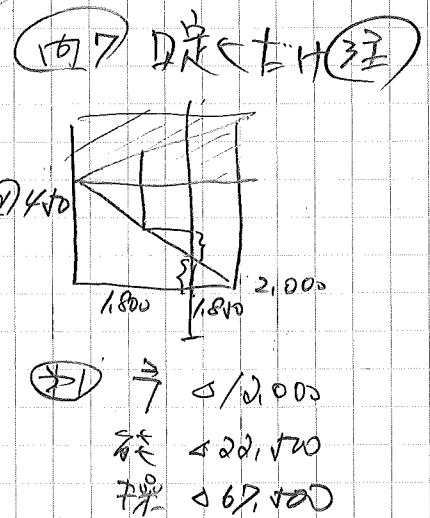 問7 固定くだけ 注
450
1,800 1,850 2,000
※1 予 △12,000
能 △22,500
操 △67,500